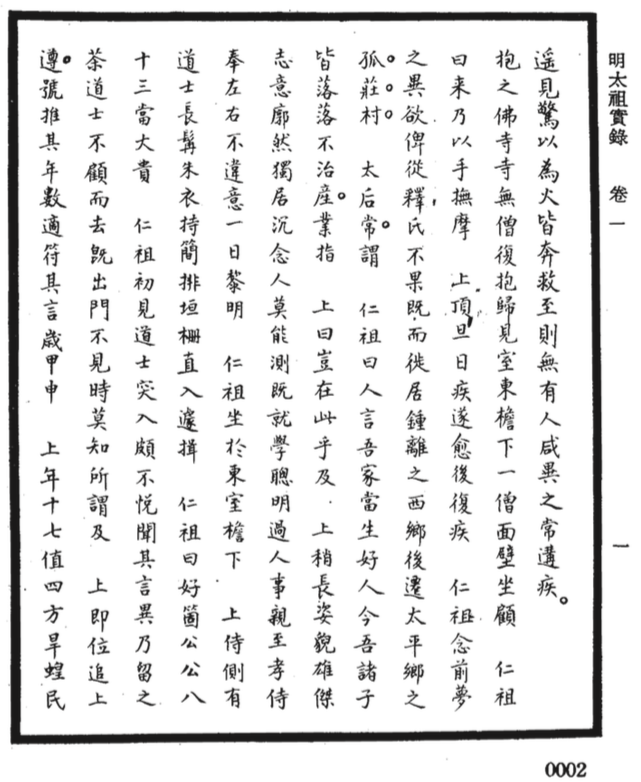 明太祖實錄　卷一
一
遥見驚以為火皆奔救至則無有人咸異之常遘疾。
抱之佛寺寺無僧復抱歸見室東檐下一僧面壁坐顧　仁祖
曰来乃以手撫摩　上頂旦日疾遂愈後復疾　仁祖念前夢
之異欲俾從釋氏不果既而徙居鍾離之西鄉後遷太平鄉之
孤。莊。村。　太后常。謂　仁祖曰人言吾家當生好人今吾諸子
皆落落不治產。業指　上曰豈在此乎及　上稍長姿貌雄傑
志意廓然獨居沉念人莫能測既就學聰明過人事親至孝侍
奉左右不違意一日黎明　仁祖坐於東室檐下　上侍側有
道士長髯朱衣持簡排垣柵直入遽揖　仁祖曰好箇公公八
十三當大貴　仁祖初見道士突入頗不悅聞其言異乃留之
茶道士不顧而去既出門不見時莫知所謂及　上即位追上
遵。號推其年數適符其言歲甲申　上年十七值四方旱蝗民
0002